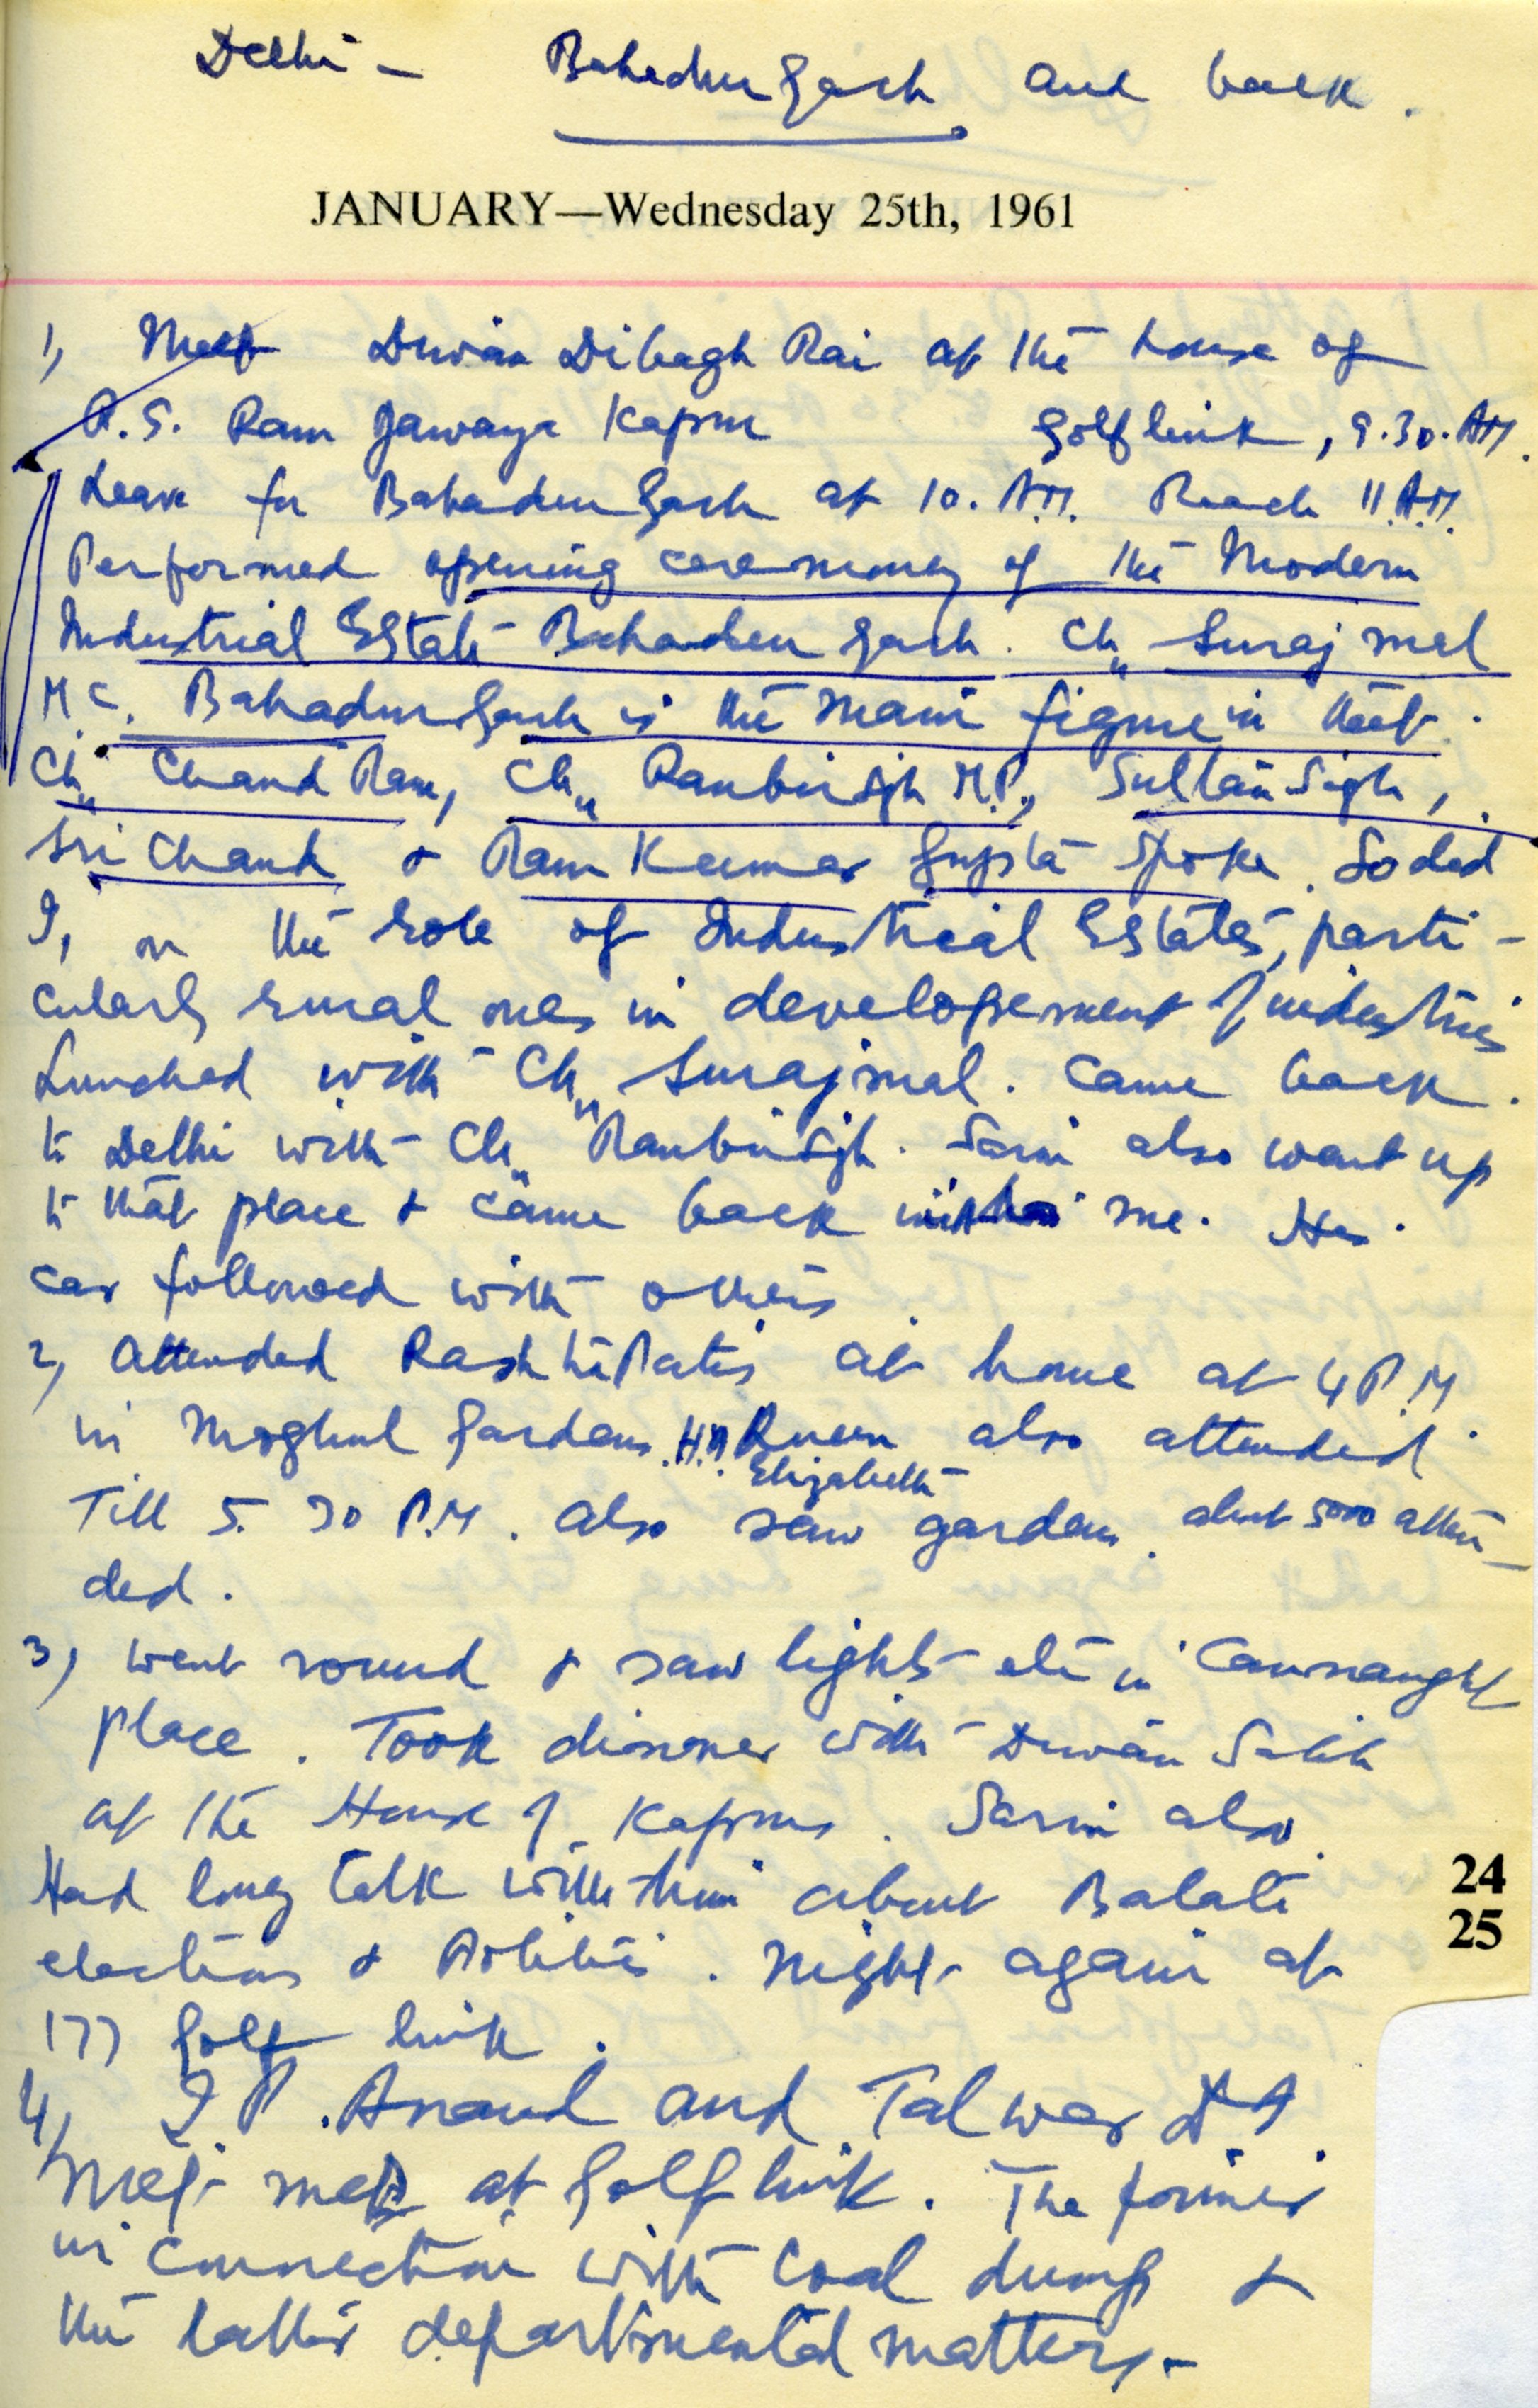 Delhi - Bahadurgarh and back.
JANUARY—Wednesday 25th, 1961
1, Met Diwan Dibagh Rai at the house of
R.S. Ram Jawaya Kapur Golf link, 9.30. AM.
Leave for Bahadurgarh at 10. A.M. Reach 11 A.M.
Performed opening ceremoney of the Modern
Industrial Estate Bahadurgarh. Ch,, Suraj mal
M.C. Bahadurgarh is the main figure in that.
Ch,, Chand Ram, Ch,, Ranbirsigh M.P., Sultan Sigh,
Sri Chand & Ram Kumar Gupta spoke. So did
I, on the role of Industrial Estates, parti-
cularly rural ones in developement of industries
Lunched with Ch,, Surajmal. Came back
to Delhi with Ch,, Ranbirsigh. Sarin also went up
to that place & came back with me. His
car followed with others.
2, Attended Rashtrapatis at home at 4 P.M
in Moghul Gardens. H.M Queen also attended.
Elizabeth
Till 5.30 P.M. Also saw gardens. about 5000 atten-
ded.
3, went round & saw lights etc in Cannaught
place. Took dinner with Diwan Sahib
at the House of Kapurs. Sarin also.
Had long talk with him about Balati
elections & Politics. Night again at
177 Golf link.
4, I. P. Anand and Talwar
Met me at Golf link. The former
in connection with Coal dump &
the latter departmental matters.-
24
25